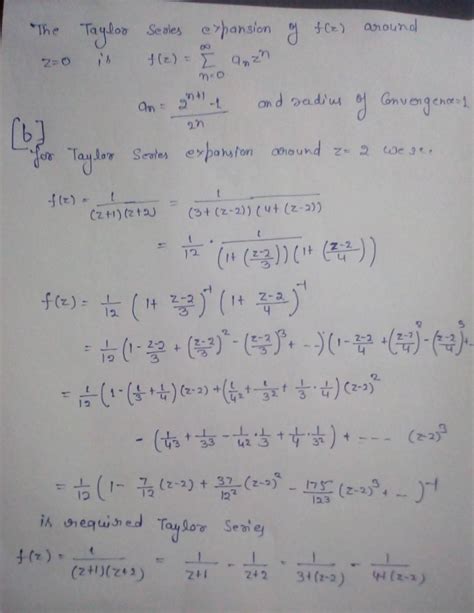 The Taylor Series expansion of f(z) around
z=0 is f(z) = ∑_{n=0}^{∞} a_n z^n
a_n = (2^{n+1} - 1)/2^n and radius of Convergence=1
[b]
for Taylor Series expansion around z= 2 we re.
f(z) = 1/((z+1)(z+2)) = 1/((3+(z-2))(4+(z-2)))
= 1/12 · 1/((1+((z-2)/3))(1+((z-2)/4)))
f(z) = 1/12 (1+ (z-2)/3)^{-1} (1+ (z-2)/4)^{-1}
= 1/12 (1- (z-2)/3 + ((z-2)/3)^2 - ((z-2)/3)^3 + ---) (1- (z-2)/4 + ((z-2)/4)^2 - ((z-2)/4)^3 + --
= 1/12 (1-(1/3+1/4)(z-2)+(1/4^2+1/3^2+1/3·1/4)(z-2)^2
-(1/4^3+1/3^3-1/4^2·1/3+1/4·1/3^2)+---- (z-2)^3
= 1/12 (1- 7/12 (z-2)+ 37/12^2 (z-2)^2 - 175/123 (z-2)^3 + --)^{-1}
is required Taylor Series
f(z) = 1/((z+1)(z+2)) = 1/(z+1) - 1/(z+2) = 1/(3+(z-2)) - 1/(4+(z-2))